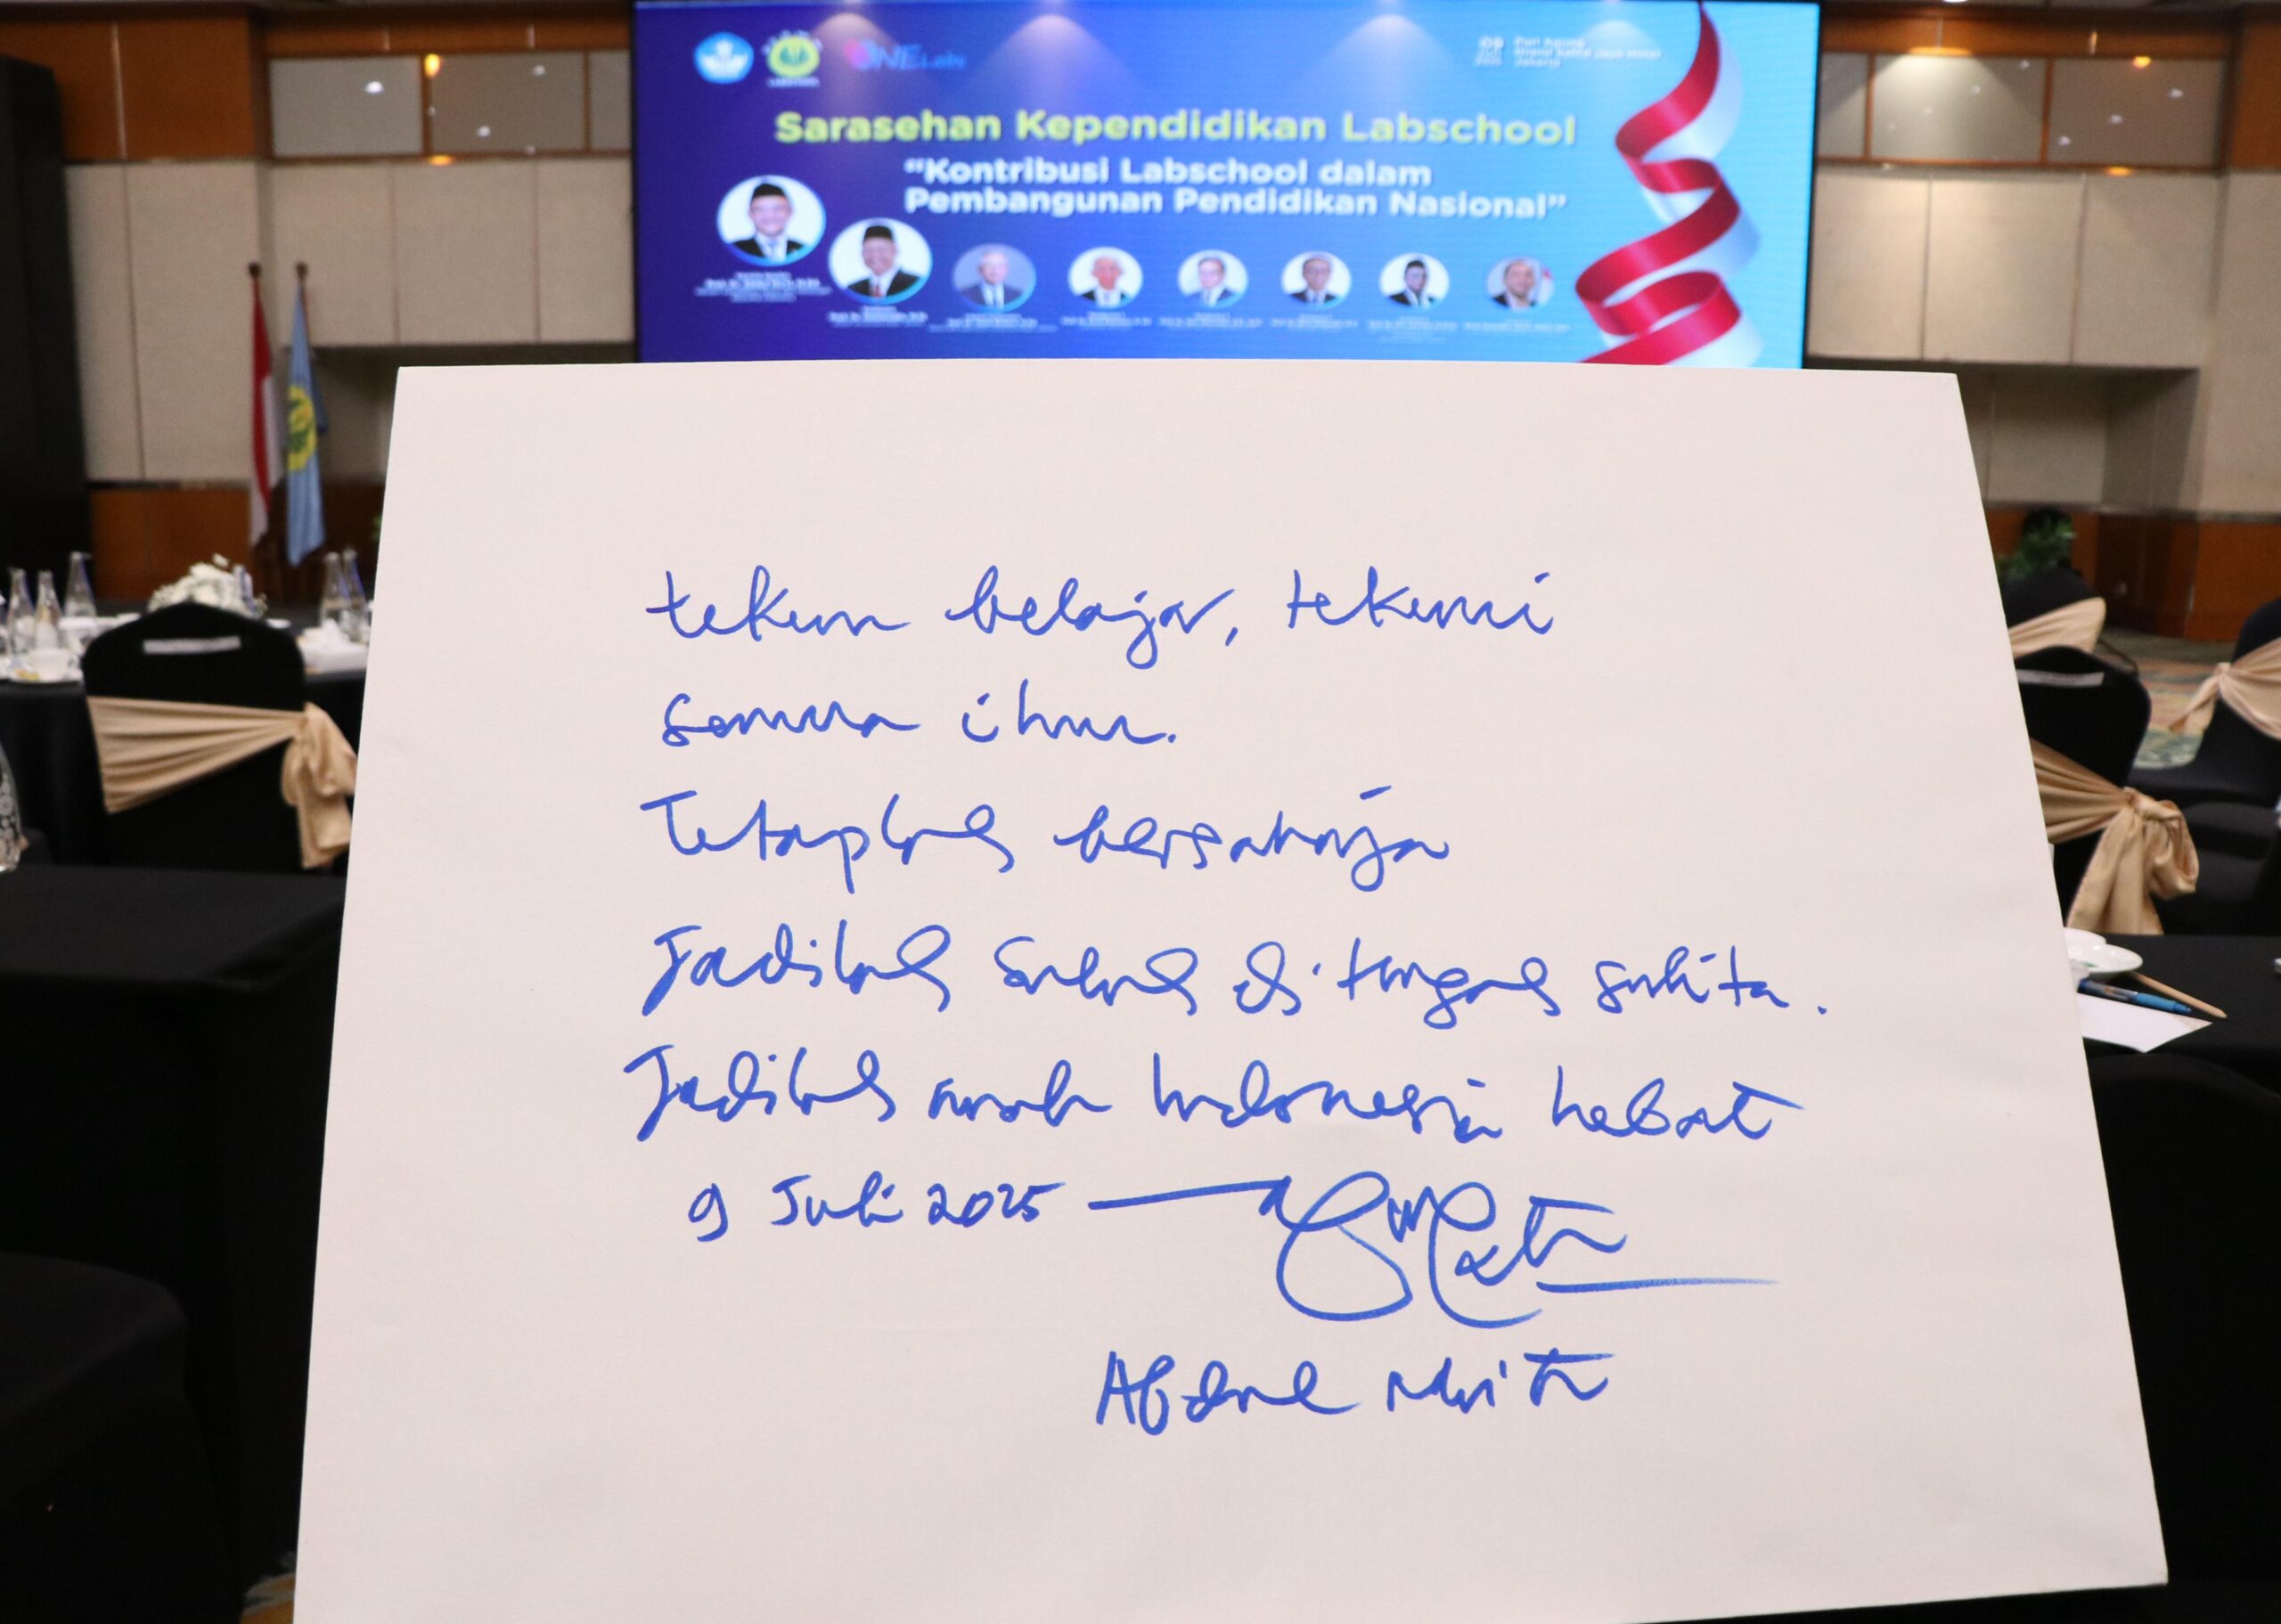 ONE Labs
Sarasehan Kependidikan Labschool
“Kontribusi Labschool dalam
Pembangunan Pendidikan Nasional”
tekun belajar, tekuni
semua ilmu.
Tetaplah bersahaja
Jadilah di tengah
Jadilah anak Indonesia hebat
9 Juli 2025
Abdul Mu'ti